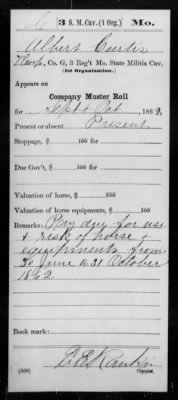 C 3 S.M. Cav. (1 Org.) Mo.
Albert Curtis
Co. G, 3 Reg't Mo. State Militia Cav.
(1st Organization.)
Appears on
Company Muster Roll
for Sept & Oct, 1862.
Present or absent Present
Stoppage, $ 100 for
Due Gov't, $ 100
Valuation of horse, $ 100
Valuation of horse equipments, $ 100
Remarks: Pay due for use
& risk of horse &
equipments from
30 June to 31 October
1862
Book mark:
(358) Copyist.